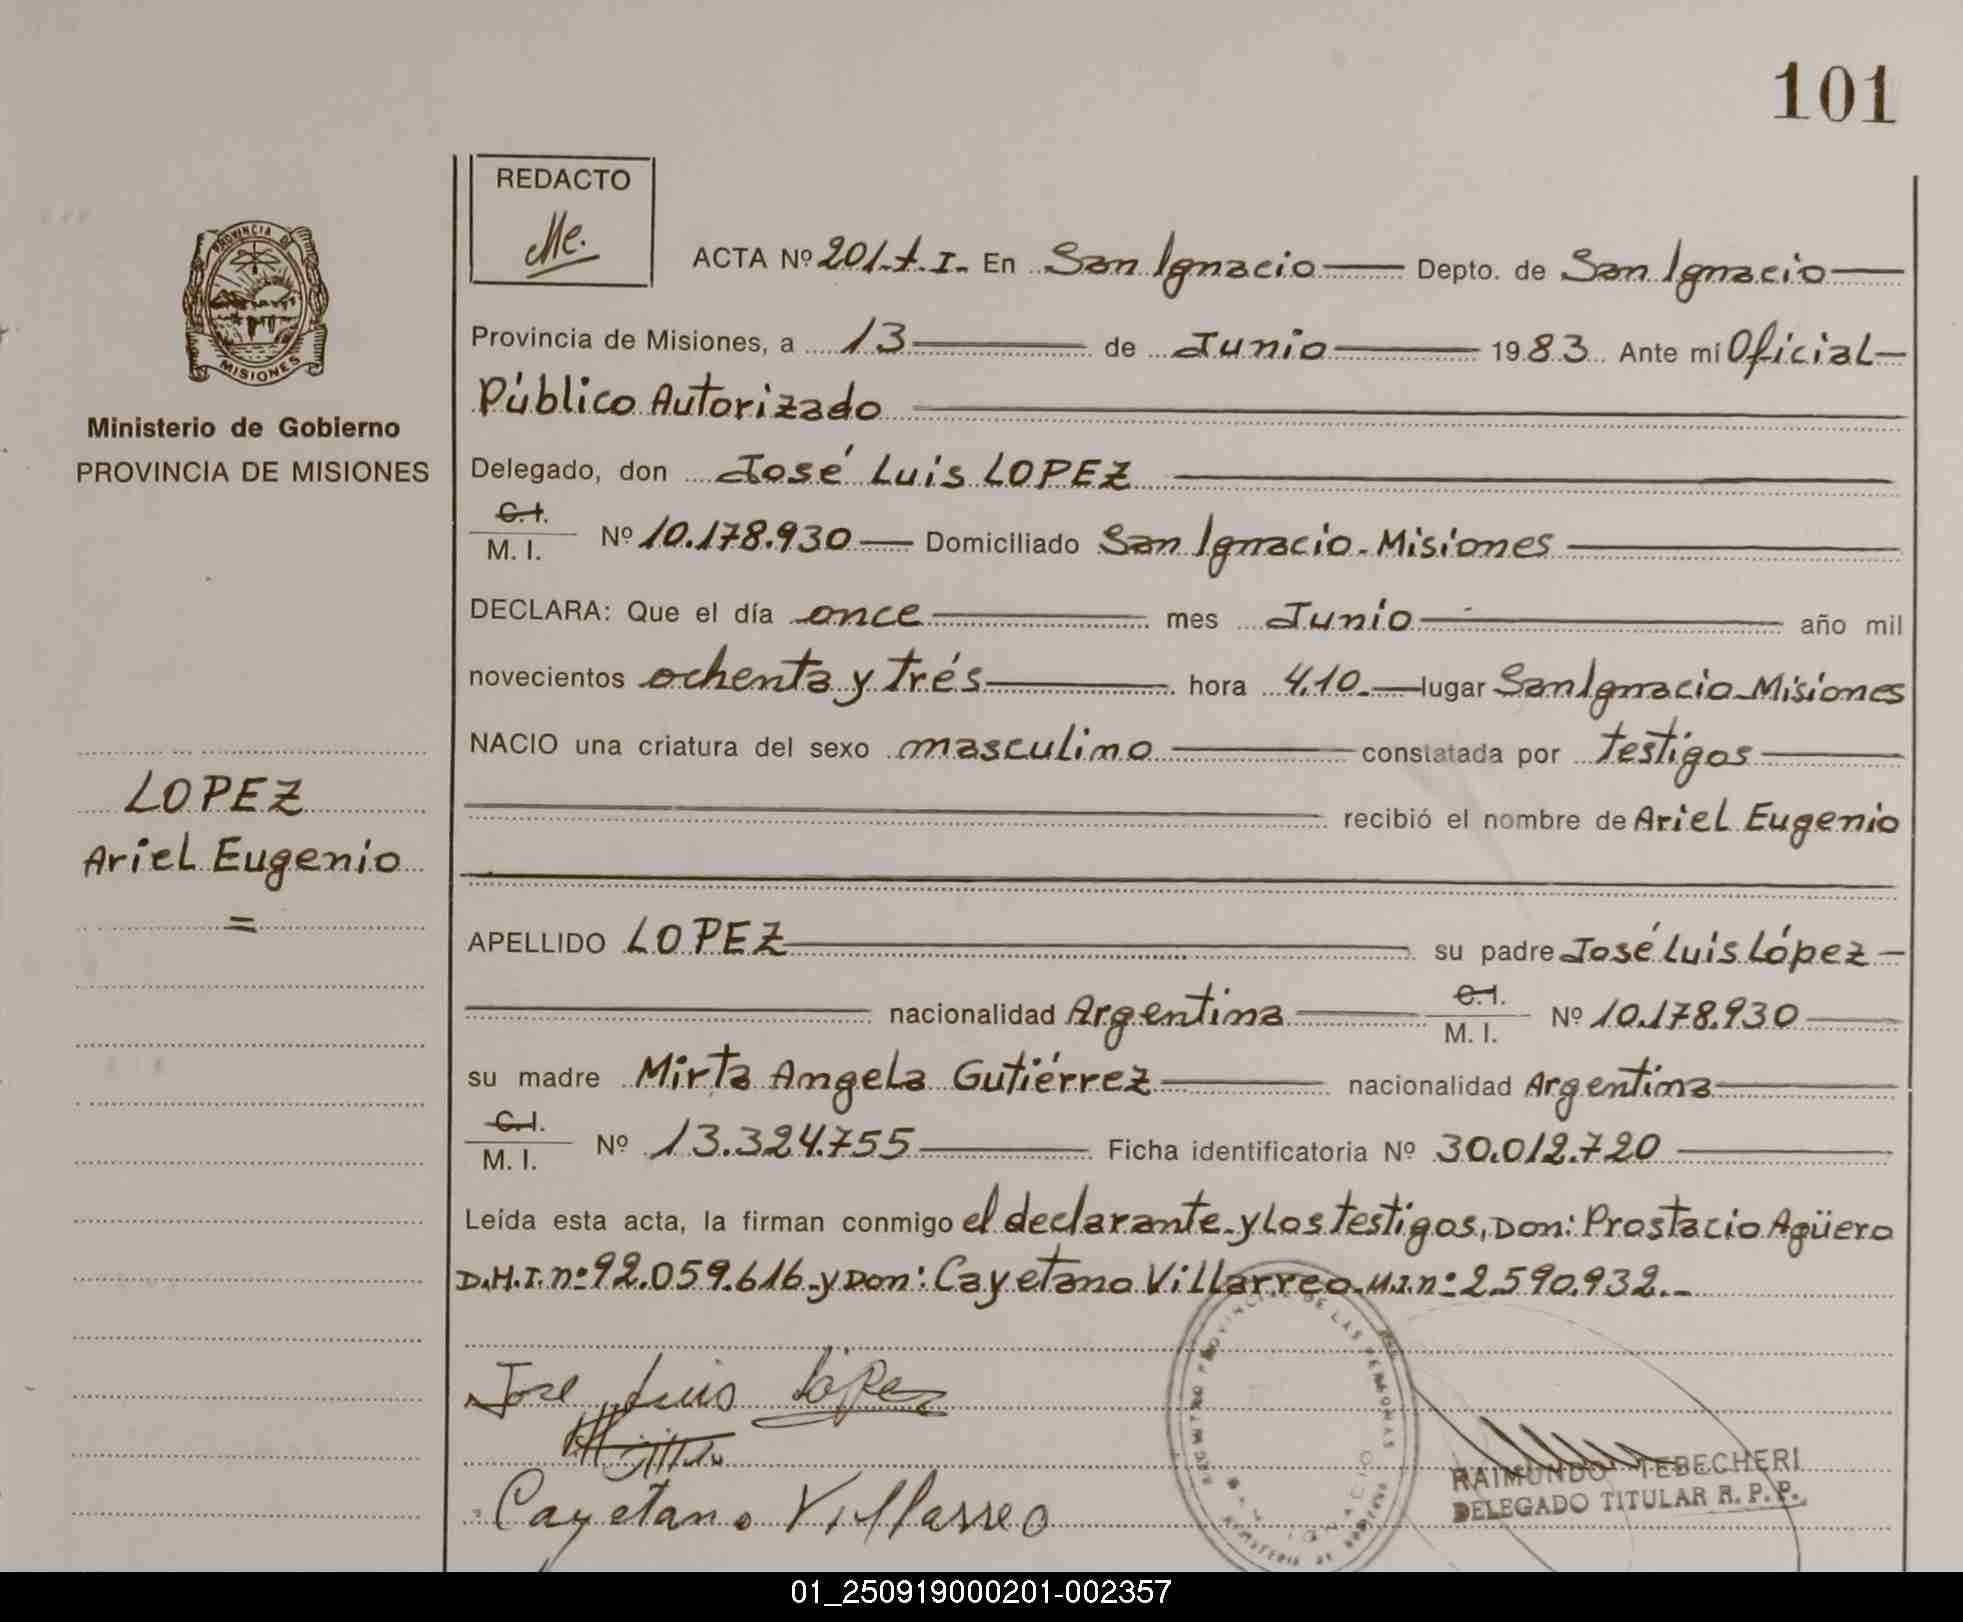 101
REDACTO
Me.
ACTA Nº 201.t.I. En San Ignacio Depto. de San Ignacio
Provincia de Misiones, a 13 de Junio 1983 Ante mi Oficial
Público Autorizado
Delegado, don José Luis LOPEZ
C.I.
M. I. Nº 10.178.930 Domiciliado San Ignacio - Misiones
DECLARA: Que el día once mes Junio año mil
novecientos ochenta y trés hora 4.10. lugar San Ignacio - Misiones
NACIO una criatura del sexo masculino constatada por testigos
recibió el nombre de Ariel Eugenio
APELLIDO LOPEZ su padre José Luis López
nacionalidad Argentina C.I. M. I. Nº 10.178.930
su madre Mirta Angela Gutiérrez nacionalidad Argentina
C.I.
M. I. Nº 13.324.755 Ficha identificatoria Nº 30.012.720
Leída esta acta, la firman conmigo el declarante y los testigos, Don: Prostacio Agüero
D.H.I. nº 92.059.616 - y Don: Cayetano Villarreo - M.I. nº 2.590.932.-
Jose Luis López
Cayetano Villarreo
PROVINCIA DE MISIONES
Ministerio de Gobierno
PROVINCIA DE MISIONES
LOPEZ
Ariel Eugenio
=
REGISTRO PROVINCIAL DE LAS PERSONAS
SAN IGNACIO
MINISTERIO DE GOBIERNO
RAIMUNDO TEBECHERI
DELEGADO TITULAR R. P. P.
01_250919000201-002357